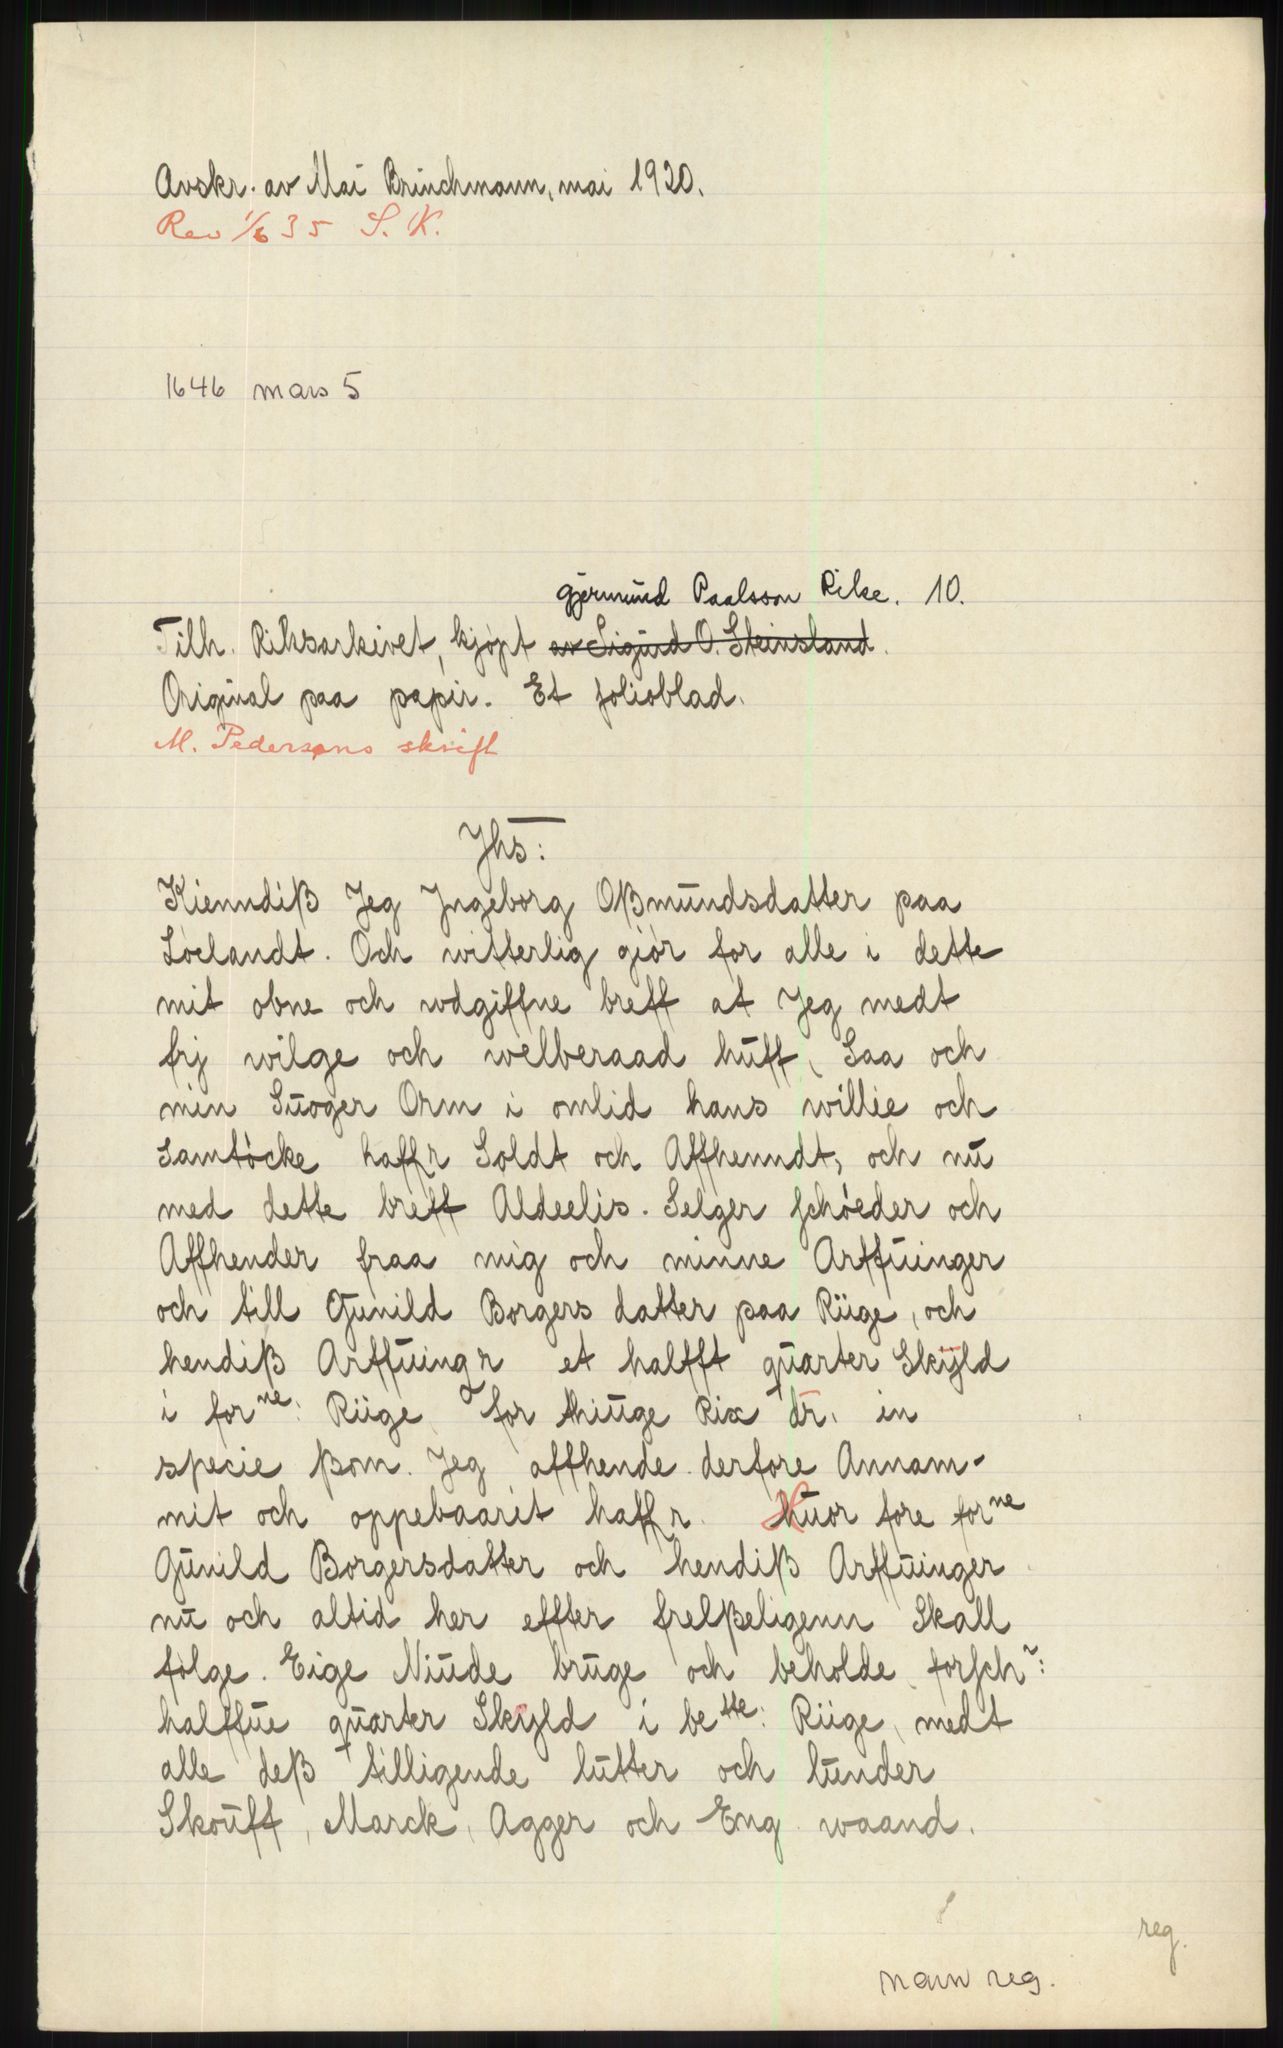 Avskr. av Mai Brinchmann, mai 1920.
Rev 1/6 35 S. K.
1646 mars 5
gjermund Paalsson Rike. 10.
Tilh. Riksarkivet, kjøpt av Sigurd O. Steinsland.
Original paa papir. Et folioblad.
M. Pedersøns skrift
Jhs:
Kienndiß Jeg Jngeborg Oßmundsdatter paa
Löelandt. Och witterlig giör for alle i dette
mit obne och wdgiffne breff at Jeg medt
frj wilge och welberaad huff, Saa och
min Suoger Orm i omlid hans willie och
Samtöcke haffr Soldt och Affhenndt, och nu
med dette breff Aldeelis. Selger schöeder och
Affhender fraa mig och minne Arffuinger
och till Gunild Borgers datter paa Riige, och
hendiß Arffuingr et halfft quarter Skÿld
i forne: Riige for thiuge Rix dr. in
specie ßom. Jeg affhende derfore Annam-
mit och oppebaarit haffr. Huor fore forne
Gunild Borgersdatter och hendiß Arffuinger
nu och altid her effter frelßeligenn Skall
følge. Eige Niude bruge och beholde forschr:
halffue quarter Skÿld i bette: Riige, medt
alle deß tilligende lutter och lunder
Skouff, Marck, Agger och Eng waand.
reg.
navn reg.